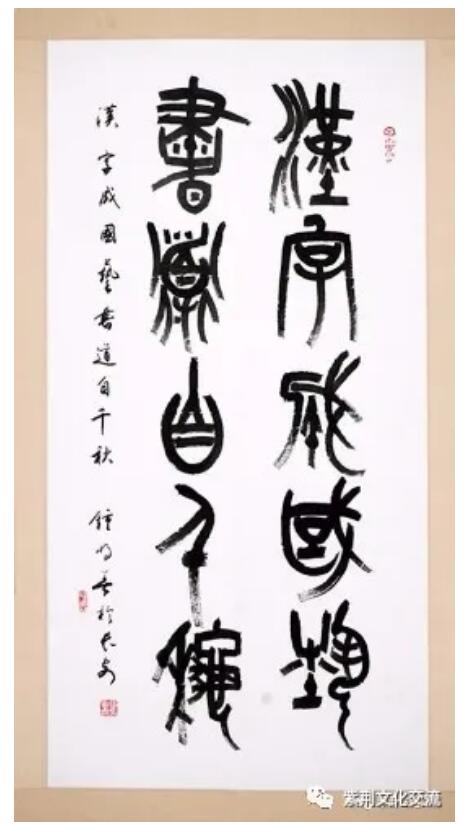 漢字成國藝
書道自千秋
漢字成國藝書道自千秋 鍾明善於長安
紫荆文化交流